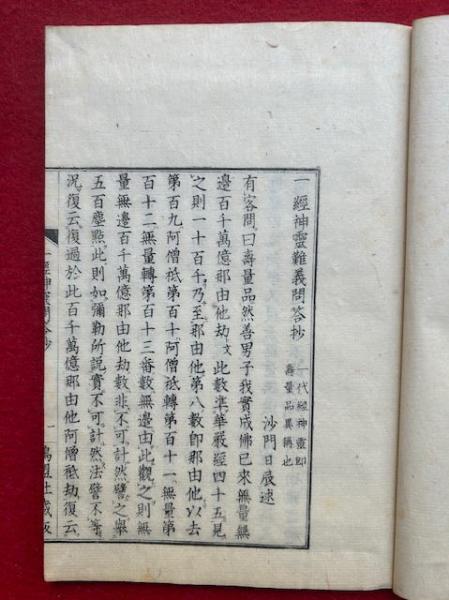 一經神靈難義問答抄
一代經神靈即
壽量品異稱也
沙門日辰述
有客問曰壽量品然善男子我實成佛已來無量無
邊百千萬億那由他劫文此數準華嚴經四十五見
之則一十百千乃至那由他第八數即那由他以去
第百九阿僧祇第百十阿僧祇轉第百十一無量第
百十二無量轉第百十三番數無邊由此觀之則無
量無邊百千萬億那由他劫數非不可計然譬之舉
五百塵點此則如彌勒所說實不可計然法譬不等
況復云復過於此百千萬億那由他阿僧祇劫復云
一經神靈問答抄
一